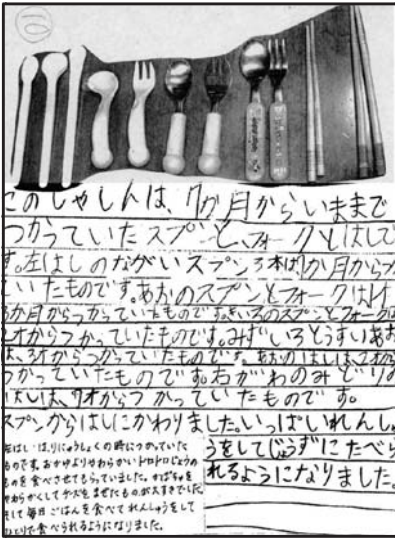 10
このしゃしんは、7か月からいままで
つかっていたスプンと、フォークとはしで
す。左はしのながいスプン3本は7か月からつか
っていたものです。あおのスプンとフォークは1才
3か月からつかっていたものです。きいろのスプンとフォークは
2才からつかっていたものです。みずいろとうすいあお
は、3才からつかっていたものです。あおのはしは、2才から
つかっていたものです。右がわのみどりの
はしは、7才からつかっていたものです。
スプンからはしにかわりました。いっぱいれんしゅ
うをしてじょうずにたべら
れるようになりました。
左はしは、りにゅうしょくの時につかっていた
ものです。おかゆよりやわらかいドロドロじょうの
ものを食べさせてもらっていました。かぼちゃを
やわらかくしてチーズをまぜたものが大すきでした。
そして毎日ごはんを食べてれんしゅうをして
ひとりで食べられるようになりました。